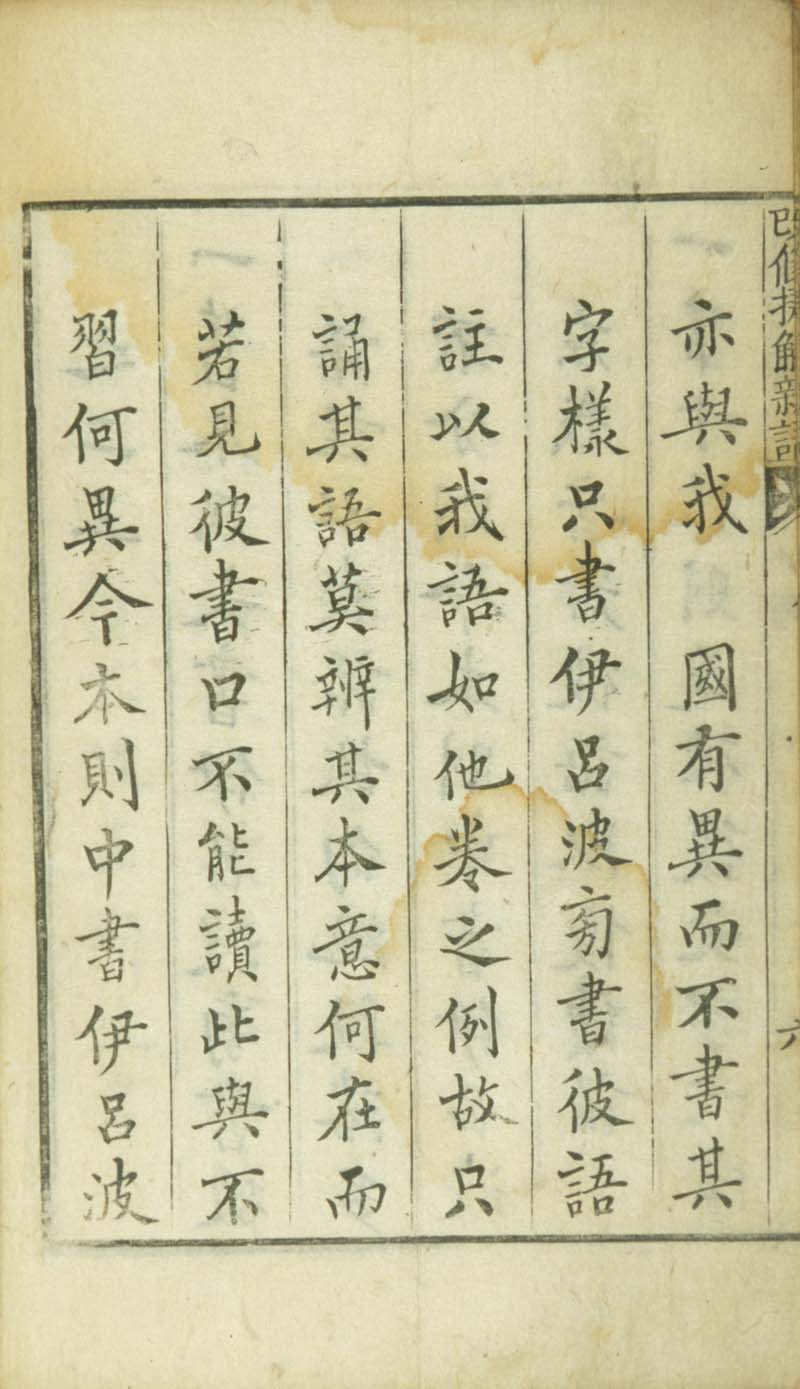 改修捷解新語
六
亦與我　國有異而不書其
字樣只書伊呂波旁書彼語
註以我語如他卷之例故只
誦其語莫辨其本意何在而
若見彼書口不能讀此與不
習何異今本則中書伊呂波